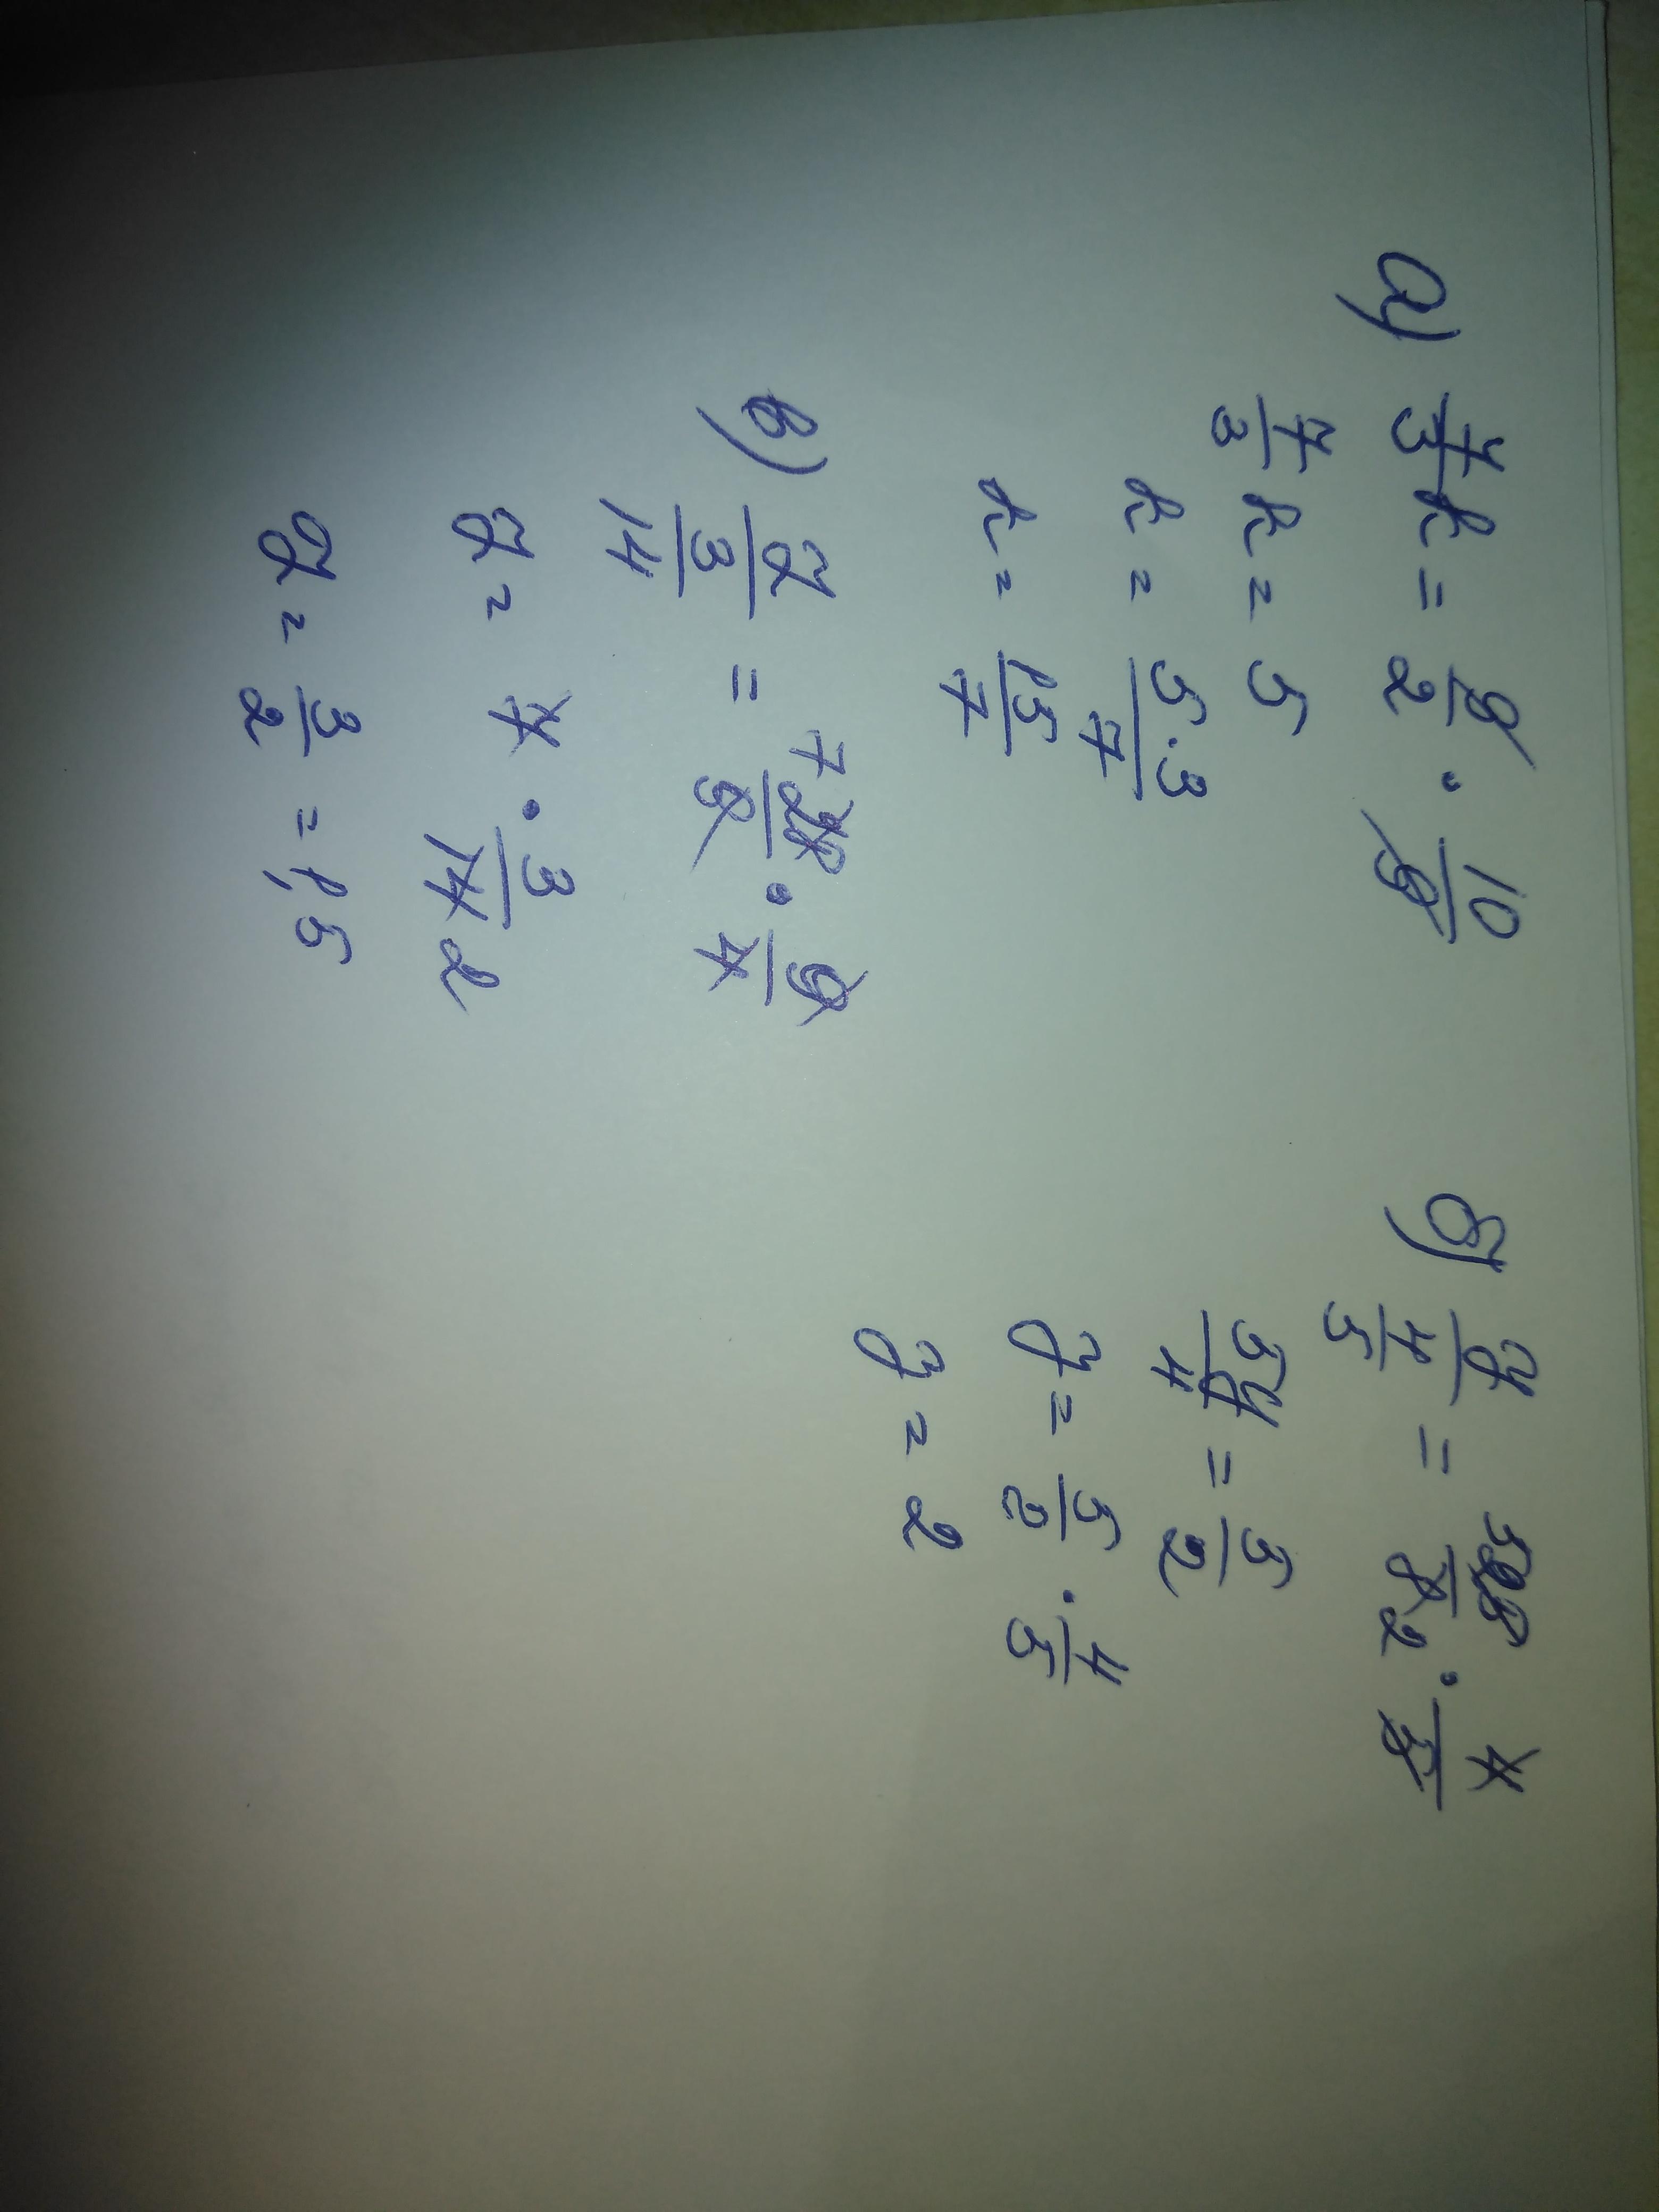 а) 7/3 k = 9/2 · 10/9
7/3 k = 5
k = 5·3/7
k = 15/7
б) y/(4/5) = 5 25/8 2 · 4/5
5y/4 = 5/2
y = 5/2 · 4/5
y = 2
в) z/(3/14) = 7 28/9 · 9/4
z = 7 · 3/14 2
z = 3/2 = 1,5